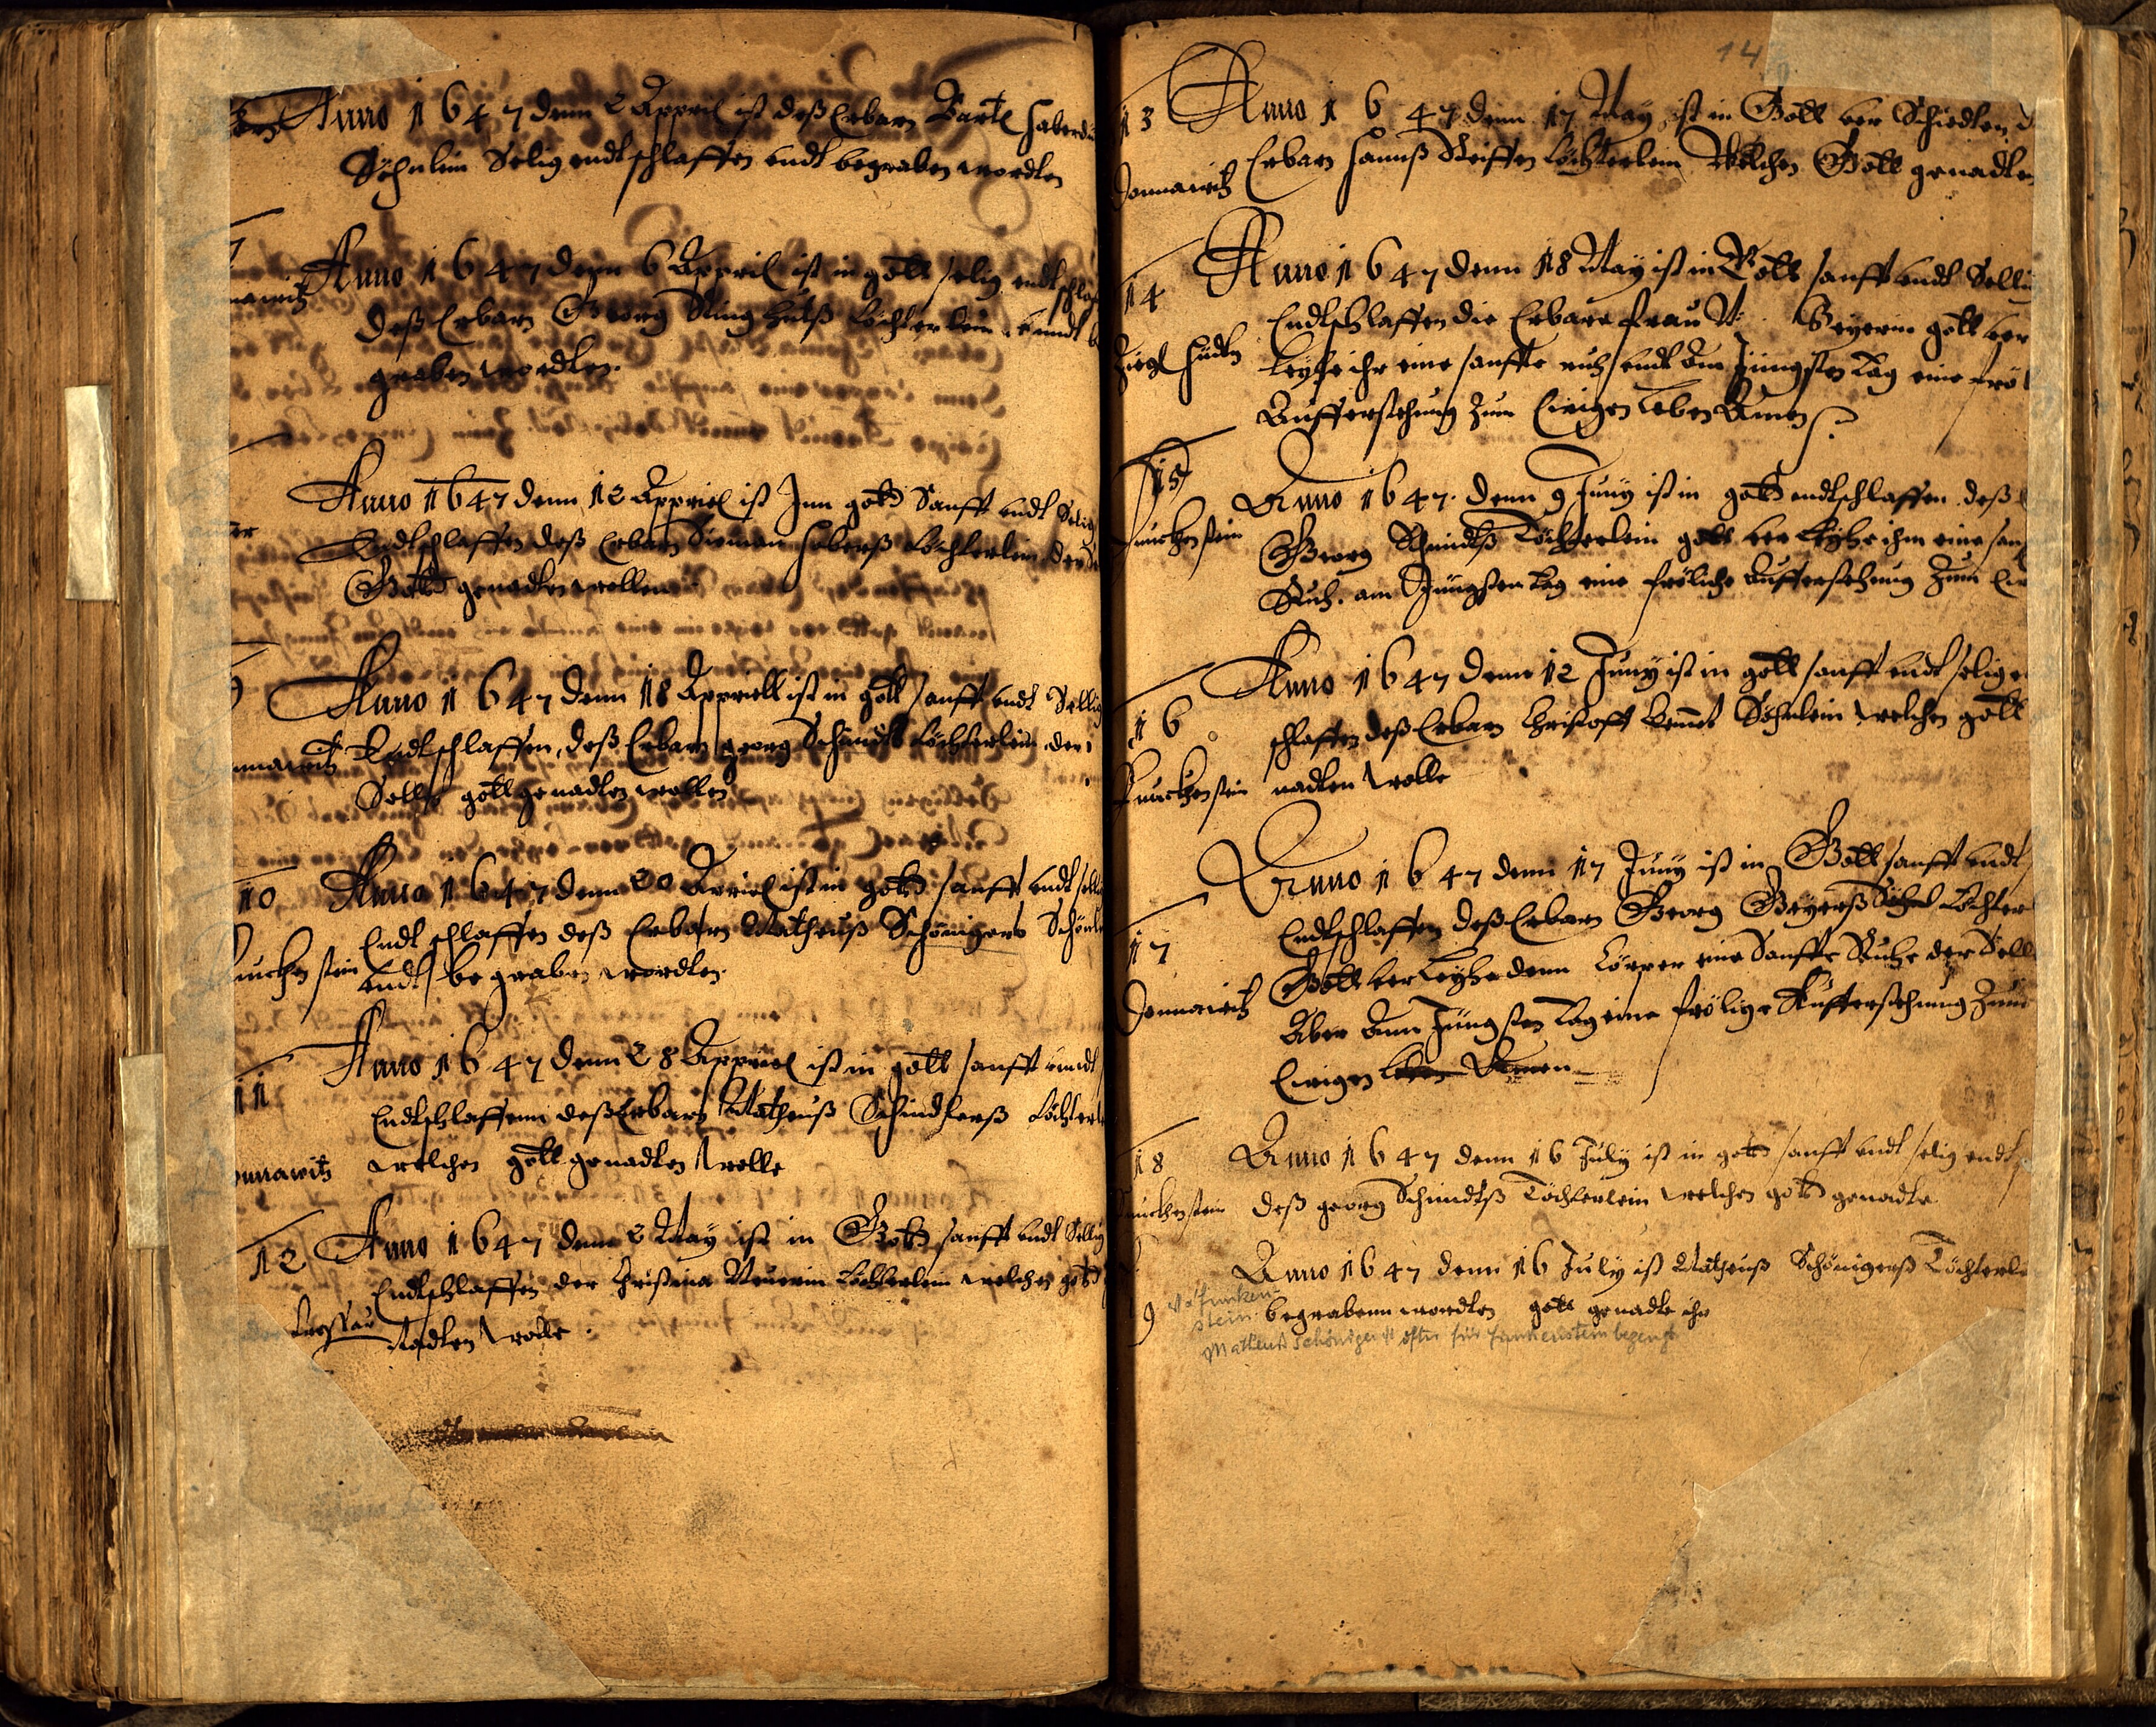 Anno 1647 denn 2 Appril ist deß Erbarn Bartl Haberd
Söhnlein Selig endtschlaffen undt begraben wordten
nawitz
Anno 1647 denn 6 Appril ist in gott selig endt schlaf
deß Erbarn Georg Töchterlein unndt be
graben wordten.
Anno 1647 denn 12 Appriel ist Inn gott Sanfft undt Selig
er
Endtschlaffen deß Erbarn Simon Haberß Töchterlein der
Gott genadten wollen
Anno 1647 denn 18 Appriell ist in gott sanfft undt Sellig
nnawitz Endtschlaffen, deß Erbarn georg Schmidts Töchterlein der
Selle gott genadten wollen
10 Anno 1647 denn 20 Appriel ist in gott sanfft undt sell
Endt schlaffen deß Erbarn Matheuß Schönigers
uncken stein undt begraben wordten.
11 Anno 1647 denn 28 Appriel ist in gott sanfft unndt
Endtschlaffenn deß Erbarn Matheuß Schindlerß Töchterl
onnawitz welchen gott genadten wolle
12 Anno 1647 denn 2 May ist in Gott sanfft undt Sellig
Endtschlaffen der Christina Töchterlein welchen gott
nadten wolle.
14
13 Anno 1647 denn 17 May ist in Gott ver Schiedten d
Donnawitz Erbarn Hannß Töchterlein Welchen Gott genadte
14 Anno 1647 denn 18 May ist in Gott sanfft undt Selli
Endtschlaffen die Erbare frau N: Beyerin gott ver
Ziegl Hüdtn leyhe ihr eine sanffte ruh undt am Jüngsten tag eine fröl
Aufferstehung zum Ewigen leben Amen
15 Anno 1647. denn 9 Juny ist in gott endtschlaffen deß
Funckenstein Georg Schmidtß Töchterlein gott ver leyhe ihm eine sanf
Ruh. am Jüngsten tag eine fröliche aufferstehung zum Ew
16 Anno 1647 denn 12 Juny ist in gott sanfft undt selig e
schlaffen deß Erbarn Christoff Söhnlein welchen gott
Funckenstein nadten wolle
17 Anno 1647 denn 17 Juny ist in Gott sanfft undt
Endtschlaffen deß Erbarn Georg Beyerß Töchter
Donnawitz Gott verleyhe denn Körper eine Sanffte Ruhe der Sell
Aber Ann Jüngsten tag eine frölige Aufferstehung zum
Ewigen leben Amen
18 Anno 1647 denn 16 July ist in gott sanfft undt selig endt
Funckenstein deß georg Schmidtß Töchterlein welchen gott genadte
19 Anno 1647 denn 16 July ist Matheuß Schönigerß Töchterle
begrabenn wordten gott genadte ihr
Funken-
stein
Matheus Schöniger ist öfter für Funkenstein bezeugt